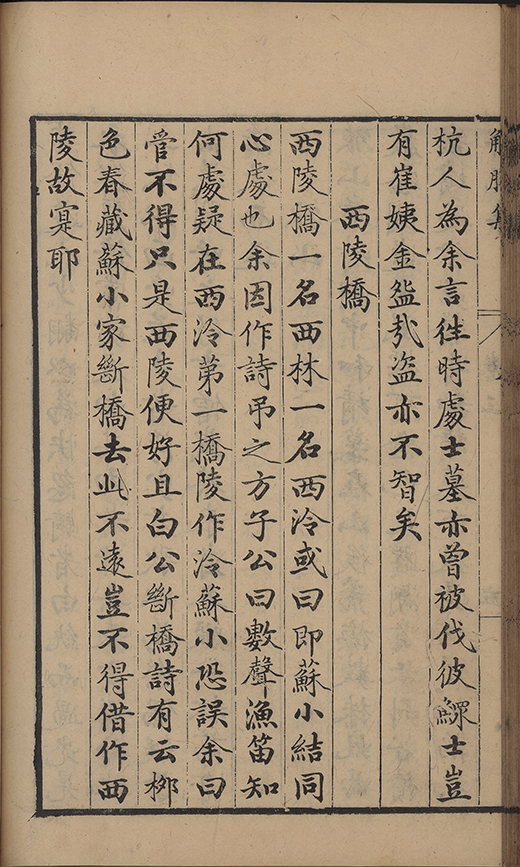 解脫集
杭人為余言往時處士墓亦曾被伐彼鰥士豈
有崔姨金盌哉盜亦不智矣
西陵橋
西陵橋一名西林一名西泠或曰即蘇小結同
心處也余因作詩弔之方子公曰數聲漁笛知
何處疑在西泠第一橋陵作泠蘇小恐誤余曰
管不得只是西陵便好且白公斷橋詩有云桞
色春藏蘇小家斷橋去此不遠豈不得借作西
陵故寔耶